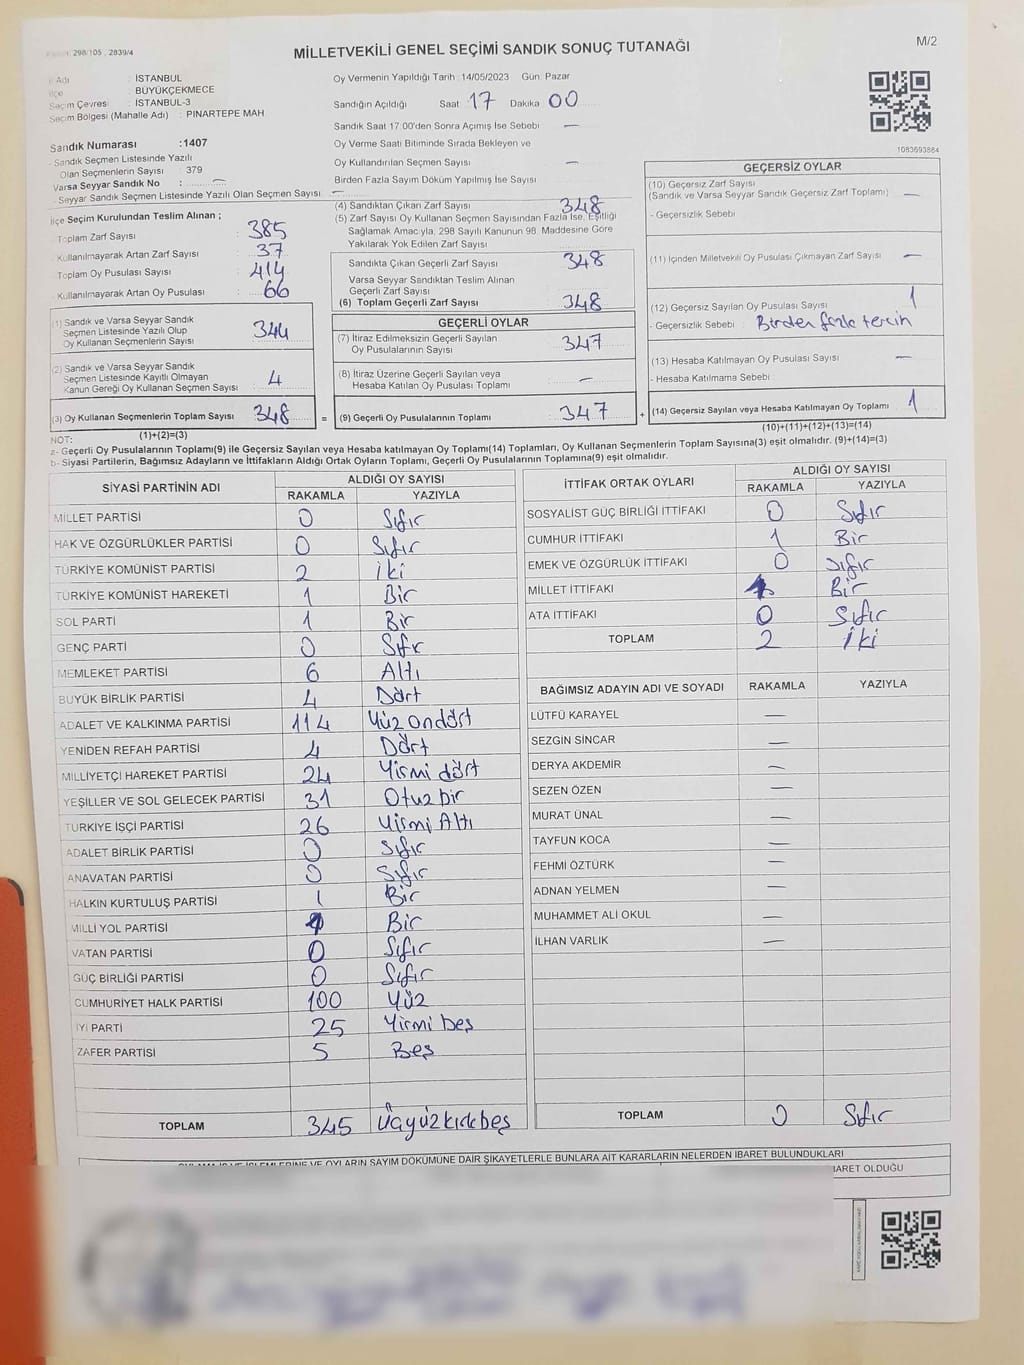 298/105 , 2839/4
MİLLETVEKİLİ GENEL SEÇİMİ SANDIK SONUÇ TUTANAĞI
M/2
İl Adı : İSTANBUL
İlçe : BÜYÜKÇEKMECE
Seçim Çevresi : İSTANBUL-3
Seçim Bölgesi (Mahalle Adı) : PINARTEPE MAH
Sandık Numarası :1407
- Sandık Seçmen Listesinde Yazılı
Olan Seçmenlerin Sayısı : 379
Varsa Seyyar Sandık No : —
- Seyyar Sandık Seçmen Listesinde Yazılı Olan Seçmen Sayısı : —
Oy Vermenin Yapıldığı Tarih :14/05/2023 Gün: Pazar
Sandığın Açıldığı Saat: 17 Dakika 00
Sandık Saat 17:00'den Sonra Açımış İse Sebebi —
Oy Verme Saati Bitiminde Sırada Bekleyen ve
Oy Kullandırılan Seçmen Sayısı —
Birden Fazla Sayım Döküm Yapılmış İse Sayısı
1083693884
İlçe Seçim Kurulundan Teslim Alınan ;
- Toplam Zarf Sayısı : 385
- Kullanılmayarak Artan Zarf Sayısı : 37
- Toplam Oy Pusulası Sayısı : 414
- Kullanılmayarak Artan Oy Pusulası : 66
(1) Sandık ve Varsa Seyyar Sandık
Seçmen Listesinde Yazılı Olup
Oy Kullanan Seçmenlerin Sayısı : 344
(2) Sandık ve Varsa Seyyar Sandık
Seçmen Listesinde Kayıtlı Olmayan
Kanun Gereği Oy Kullanan Seçmen Sayısı : 4
(3) Oy Kullanan Seçmenlerin Toplam Sayısı 348 =
(1)+(2)=(3)
(4) Sandıktan Çıkan Zarf Sayısı 348
(5) Zarf Sayısı Oy Kullanan Seçmen Sayısından Fazla İse, Eşitliği
Sağlamak Amacıyla, 298 Sayılı Kanunun 98. Maddesine Göre
Yakılarak Yok Edilen Zarf Sayısı
Sandıkta Çıkan Geçerli Zarf Sayısı 348
Varsa Seyyar Sandıktan Teslim Alınan
Geçerli Zarf Sayısı
(6) Toplam Geçerli Zarf Sayısı 348
GEÇERLİ OYLAR
(7) İtiraz Edilmeksizin Geçerli Sayılan
Oy Pusulalarının Sayısı 347
(8) İtiraz Üzerine Geçerli Sayılan veya
Hesaba Katılan Oy Pusulası Toplamı —
(9) Geçerli Oy Pusulalarının Toplamı 347 +
GEÇERSİZ OYLAR
(10) Geçersiz Zarf Sayısı
(Sandık ve Varsa Seyyar Sandık Geçersiz Zarf Toplamı) —
- Geçersizlik Sebebi
(11) İçinden Milletvekili Oy Pusulası Çıkmayan Zarf Sayısı —
(12) Geçersiz Sayılan Oy Pusulası Sayısı 1
- Geçersizlik Sebebi : Birden fazla tercih
(13) Hesaba Katılmayan Oy Pusulası Sayısı —
- Hesaba Katılmama Sebebi
(14) Geçersiz Sayılan veya Hesaba Katılmayan Oy Toplamı 1
(10)+(11)+(12)+(13)=(14)
NOT:
a- Geçerli Oy Pusulalarının Toplamı(9) ile Geçersiz Sayılan veya Hesaba katılmayan Oy Toplamı(14) Toplamları, Oy Kullanan Seçmenlerin Toplam Sayısına(3) eşit olmalıdır. (9)+(14)=(3)
b- Siyasi Partilerin, Bağımsız Adayların ve İttifakların Aldığı Ortak Oyların Toplamı, Geçerli Oy Pusulalarının Toplamına(9) eşit olmalıdır.
SİYASİ PARTİNİN ADI ALDIĞI OY SAYISI
RAKAMLA YAZIYLA
MİLLET PARTİSİ 0 Sıfır
HAK VE ÖZGÜRLÜKLER PARTİSİ 0 Sıfır
TÜRKİYE KOMÜNİST PARTİSİ 2 iki
TÜRKİYE KOMÜNİST HAREKETİ 1 Bir
SOL PARTİ 1 Bir
GENÇ PARTİ 0 Sıfır
MEMLEKET PARTİSİ 6 Altı
BÜYÜK BİRLİK PARTİSİ 4 Dört
ADALET VE KALKINMA PARTİSİ 114 Yüz ondört
YENİDEN REFAH PARTİSİ 4 Dört
MİLLİYETÇİ HAREKET PARTİSİ 24 Yirmi dört
YEŞİLLER VE SOL GELECEK PARTİSİ 31 Otuz bir
TÜRKİYE İŞÇİ PARTİSİ 26 Yirmi Altı
ADALET BİRLİK PARTİSİ 0 Sıfır
ANAVATAN PARTİSİ 0 Sıfır
HALKIN KURTULUŞ PARTİSİ 1 Bir
MİLLİ YOL PARTİSİ 1 Bir
VATAN PARTİSİ 0 Sıfır
GÜÇ BİRLİĞİ PARTİSİ 0 Sıfır
CUMHURİYET HALK PARTİSİ 100 Yüz
İYİ PARTİ 25 Yirmi beş
ZAFER PARTİSİ 5 Beş
TOPLAM 345 Üçyüzkırkbeş
İTTİFAK ORTAK OYLARI ALDIĞI OY SAYISI
RAKAMLA YAZIYLA
SOSYALİST GÜÇ BİRLİĞİ İTTİFAKI 0 Sıfır
CUMHUR İTTİFAKI 1 Bir
EMEK VE ÖZGÜRLÜK İTTİFAKI 0 Sıfır
MİLLET İTTİFAKI 1 Bir
ATA İTTİFAKI 0 Sıfır
TOPLAM 2 İki
BAĞIMSIZ ADAYIN ADI VE SOYADI RAKAMLA YAZIYLA
LÜTFÜ KARAYEL —
SEZGİN SİNCAR —
DERYA AKDEMİR —
SEZEN ÖZEN —
MURAT ÜNAL —
TAYFUN KOCA —
FEHMİ ÖZTÜRK —
ADNAN YELMEN —
MUHAMMET ALİ OKUL —
İLHAN VARLIK —
TOPLAM 0 Sıfır
OYLAMA İŞ VE İŞLEMLERİNE VE OYLARIN SAYIM DÖKÜMÜNE DAİR ŞİKAYETLERLE BUNLARA AİT KARARLARIN NELERDEN İBARET BULUNDUKLARI
İBARET OLDUĞU